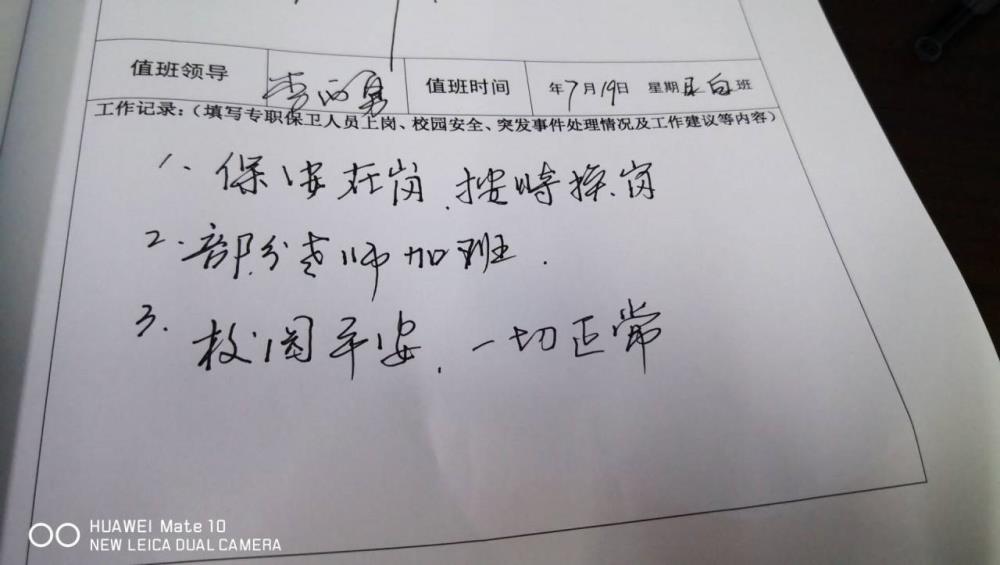 值班领导 李 勇 值班时间 年7月19日 星期五白班
工作记录:(填写专职保卫人员上岗、校园安全、突发事件处理情况及工作建议等内容)
1. 保安在岗,按时换岗
2. 部分老师加班.
3. 校园平安,一切正常
HUAWEI Mate 10
NEW LEICA DUAL CAMERA